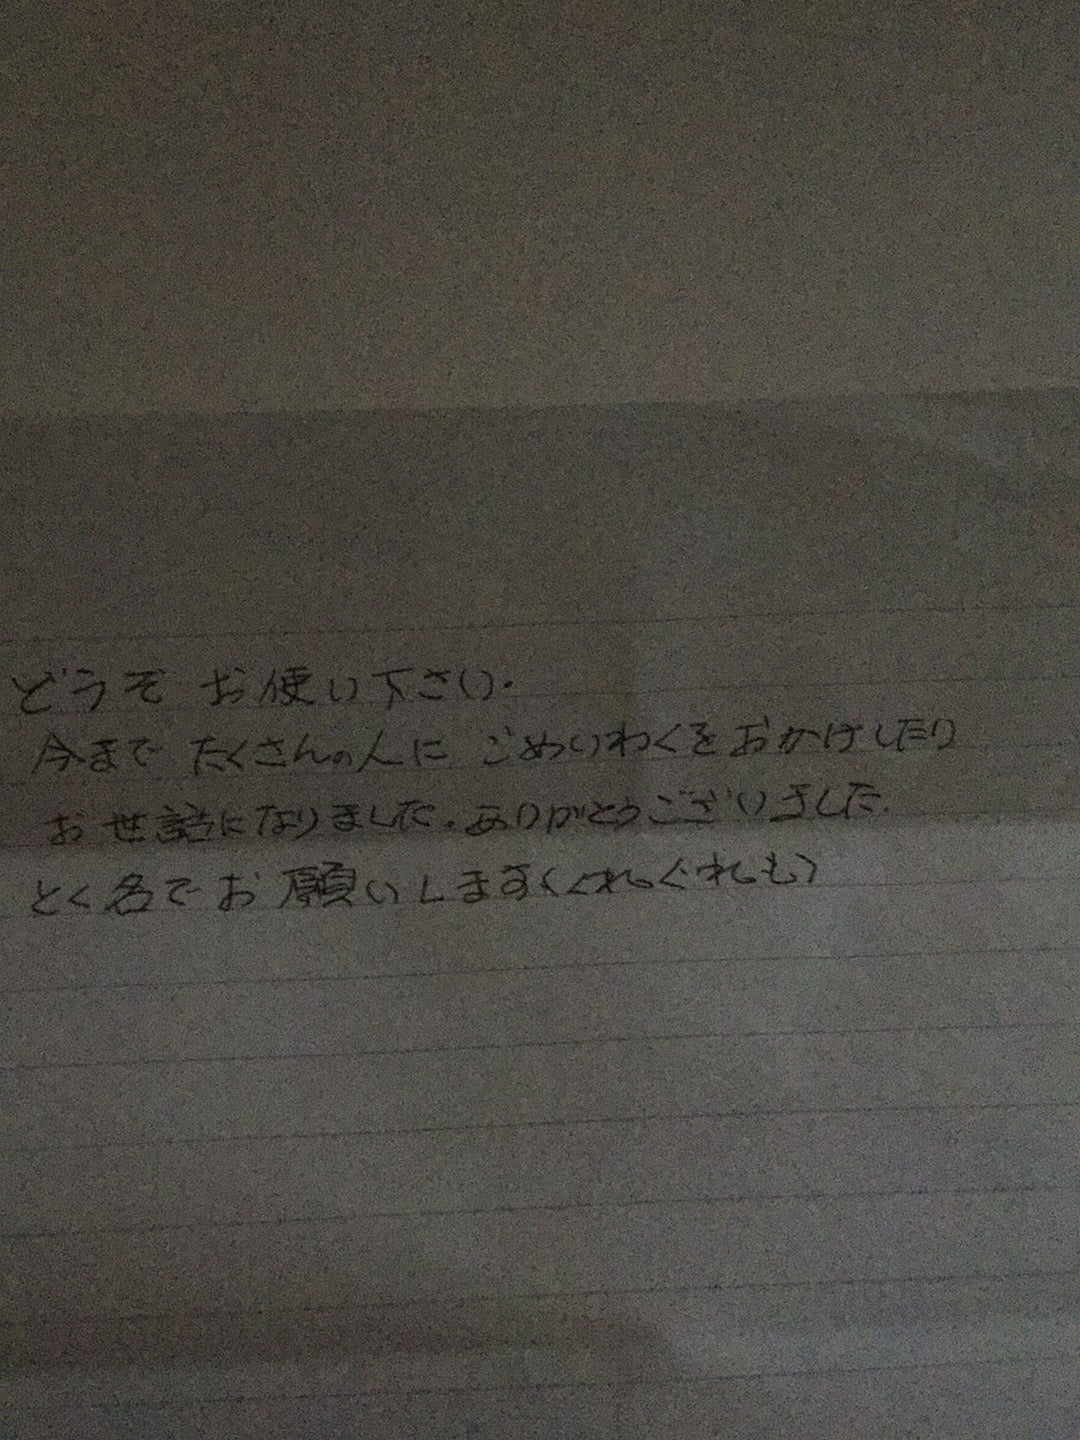 どうぞ お使い下さい.
今まで たくさんの人に ごめいわくをおかけしたり
お世話になりました. ありがとうございました.
とく名でお願いします(くれぐれも)